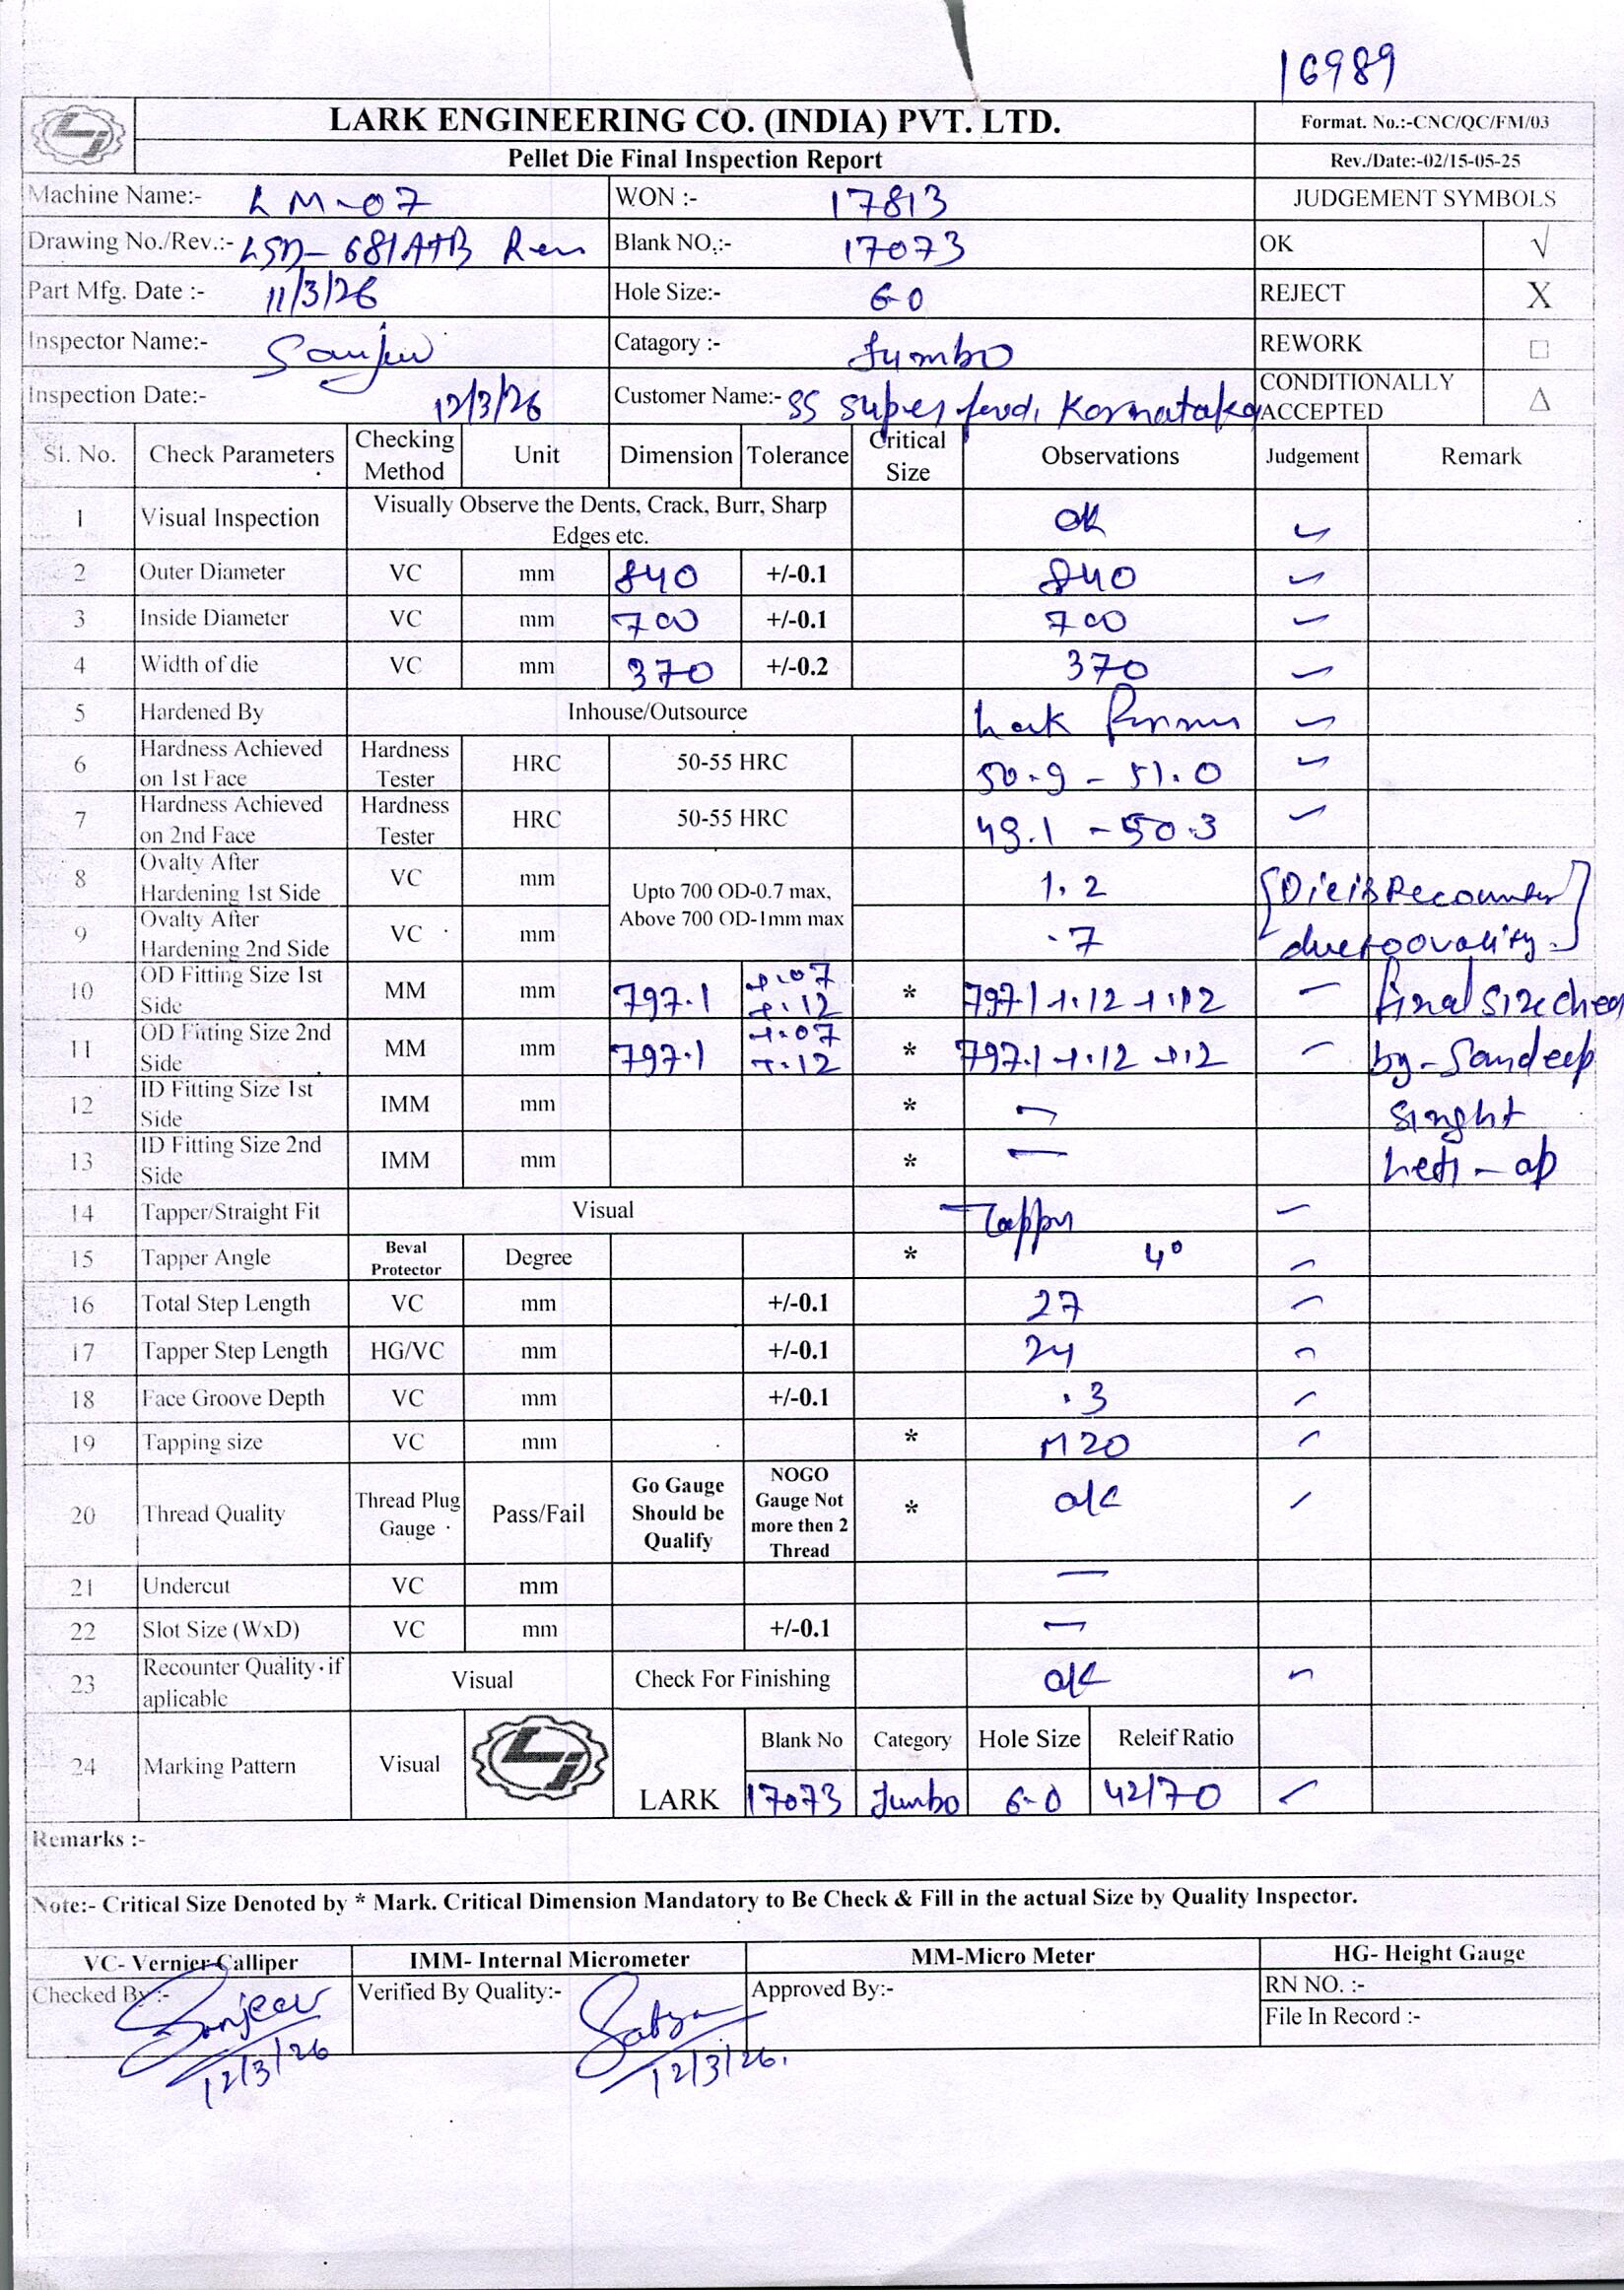 16989
LARK ENGINEERING CO. (INDIA) PVT. LTD.
Format. No.:-CNC/QC/FM/03
Pellet Die Final Inspection Report
Rev./Date:-02/15-05-25
Machine Name:- LM-07 WON :- 17813 JUDGEMENT SYMBOLS
Drawing No./Rev.:- LSD-681A+B Blank NO.:- 17073 OK √
Part Mfg. Date :- 11/3/26 Hole Size:- 6-0 REJECT X
Inspector Name:- Catagory :- Jumbo REWORK □
Inspection Date:- 12/3/26 Customer Name:- SS super feed, Karnataka CONDITIONALLY ACCEPTED △
Sl. No. Check Parameters Checking Method Unit Dimension Tolerance Critical Size Observations Judgement Remark
1 Visual Inspection Visually Observe the Dents, Crack, Burr, Sharp Edges etc. OK ✓
2 Outer Diameter VC mm 840 +/-0.1 840 ✓
3 Inside Diameter VC mm 700 +/-0.1 700 ✓
4 Width of die VC mm 370 +/-0.2 370 ✓
5 Hardened By Inhouse/Outsource Lark ✓
6 Hardness Achieved on 1st Face Hardness Tester HRC 50-55 HRC 50.9 - 51.0 ✓
7 Hardness Achieved on 2nd Face Hardness Tester HRC 50-55 HRC 49.1 - 50.3 ✓
8 Ovalty After Hardening 1st Side VC mm Upto 700 OD-0.7 max, Above 700 OD-1mm max 1.2 {Die is Recounter
9 Ovalty After Hardening 2nd Side VC mm .7 due to ovality.}
10 OD Fitting Size 1st Side MM mm 797.1 +.07 +.12 * 797.1 +.12 +.12 ✓ final size check
11 OD Fitting Size 2nd Side MM mm 797.1 +.07 +.12 * 797.1 +.12 +.12 ✓ by - Sandeep
12 ID Fitting Size 1st Side IMM mm * — Singh
13 ID Fitting Size 2nd Side IMM mm * —
14 Tapper/Straight Fit Visual Tapper ✓
15 Tapper Angle Beval Protector Degree * 4° ✓
16 Total Step Length VC mm +/-0.1 27 ✓
17 Tapper Step Length HG/VC mm +/-0.1 24 ✓
18 Face Groove Depth VC mm +/-0.1 .3 ✓
19 Tapping size VC mm * M20 ✓
20 Thread Quality Thread Plug Gauge Pass/Fail Go Gauge Should be Qualify NOGO Gauge Not more then 2 Thread * OK ✓
21 Undercut VC mm —
22 Slot Size (WxD) VC mm +/-0.1 —
23 Recounter Quality if aplicable Visual Check For Finishing OK ✓
24 Marking Pattern Visual LARK Blank No Category Hole Size Releif Ratio
17073 Jumbo 6-0 42/70 ✓
Remarks :-
Note:- Critical Size Denoted by * Mark. Critical Dimension Mandatory to Be Check & Fill in the actual Size by Quality Inspector.
VC- Vernier Calliper IMM- Internal Micrometer MM-Micro Meter HG- Height Gauge
Checked By :- Sanjeev Verified By Quality:- Approved By:- RN NO. :-
File In Record :-
12/3/26 12/3/26.